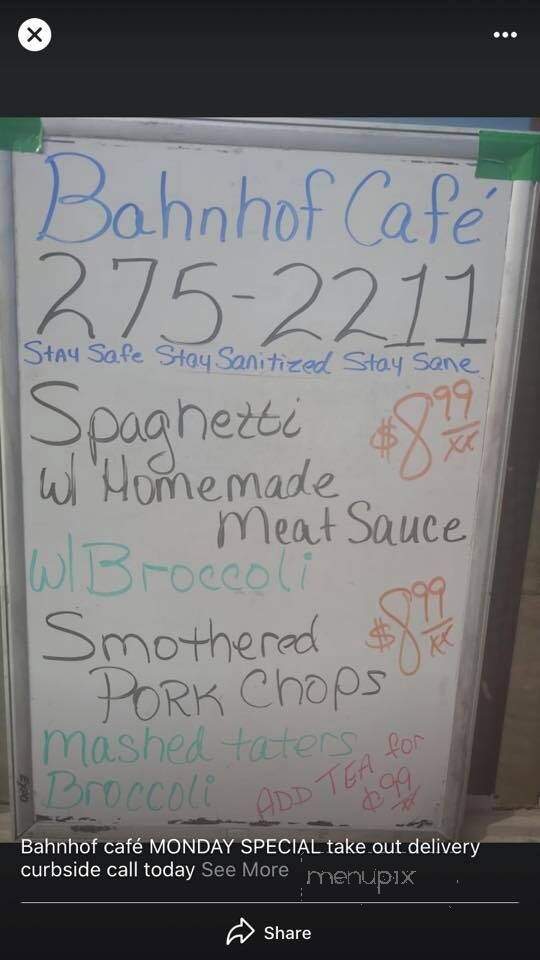 Bahnhof Café
275-2211
Stay Safe Stay Sanitized Stay Sane
Spaghetti $8.99/xx
w/ Homemade
Meat Sauce
w/ Broccoli
Smothered $8.99/xx
PORK Chops
mashed taters
Broccoli
ADD TEA for
¢99/xx
Bahnhof café MONDAY SPECIAL take out delivery
curbside call today See More
menupix
Share